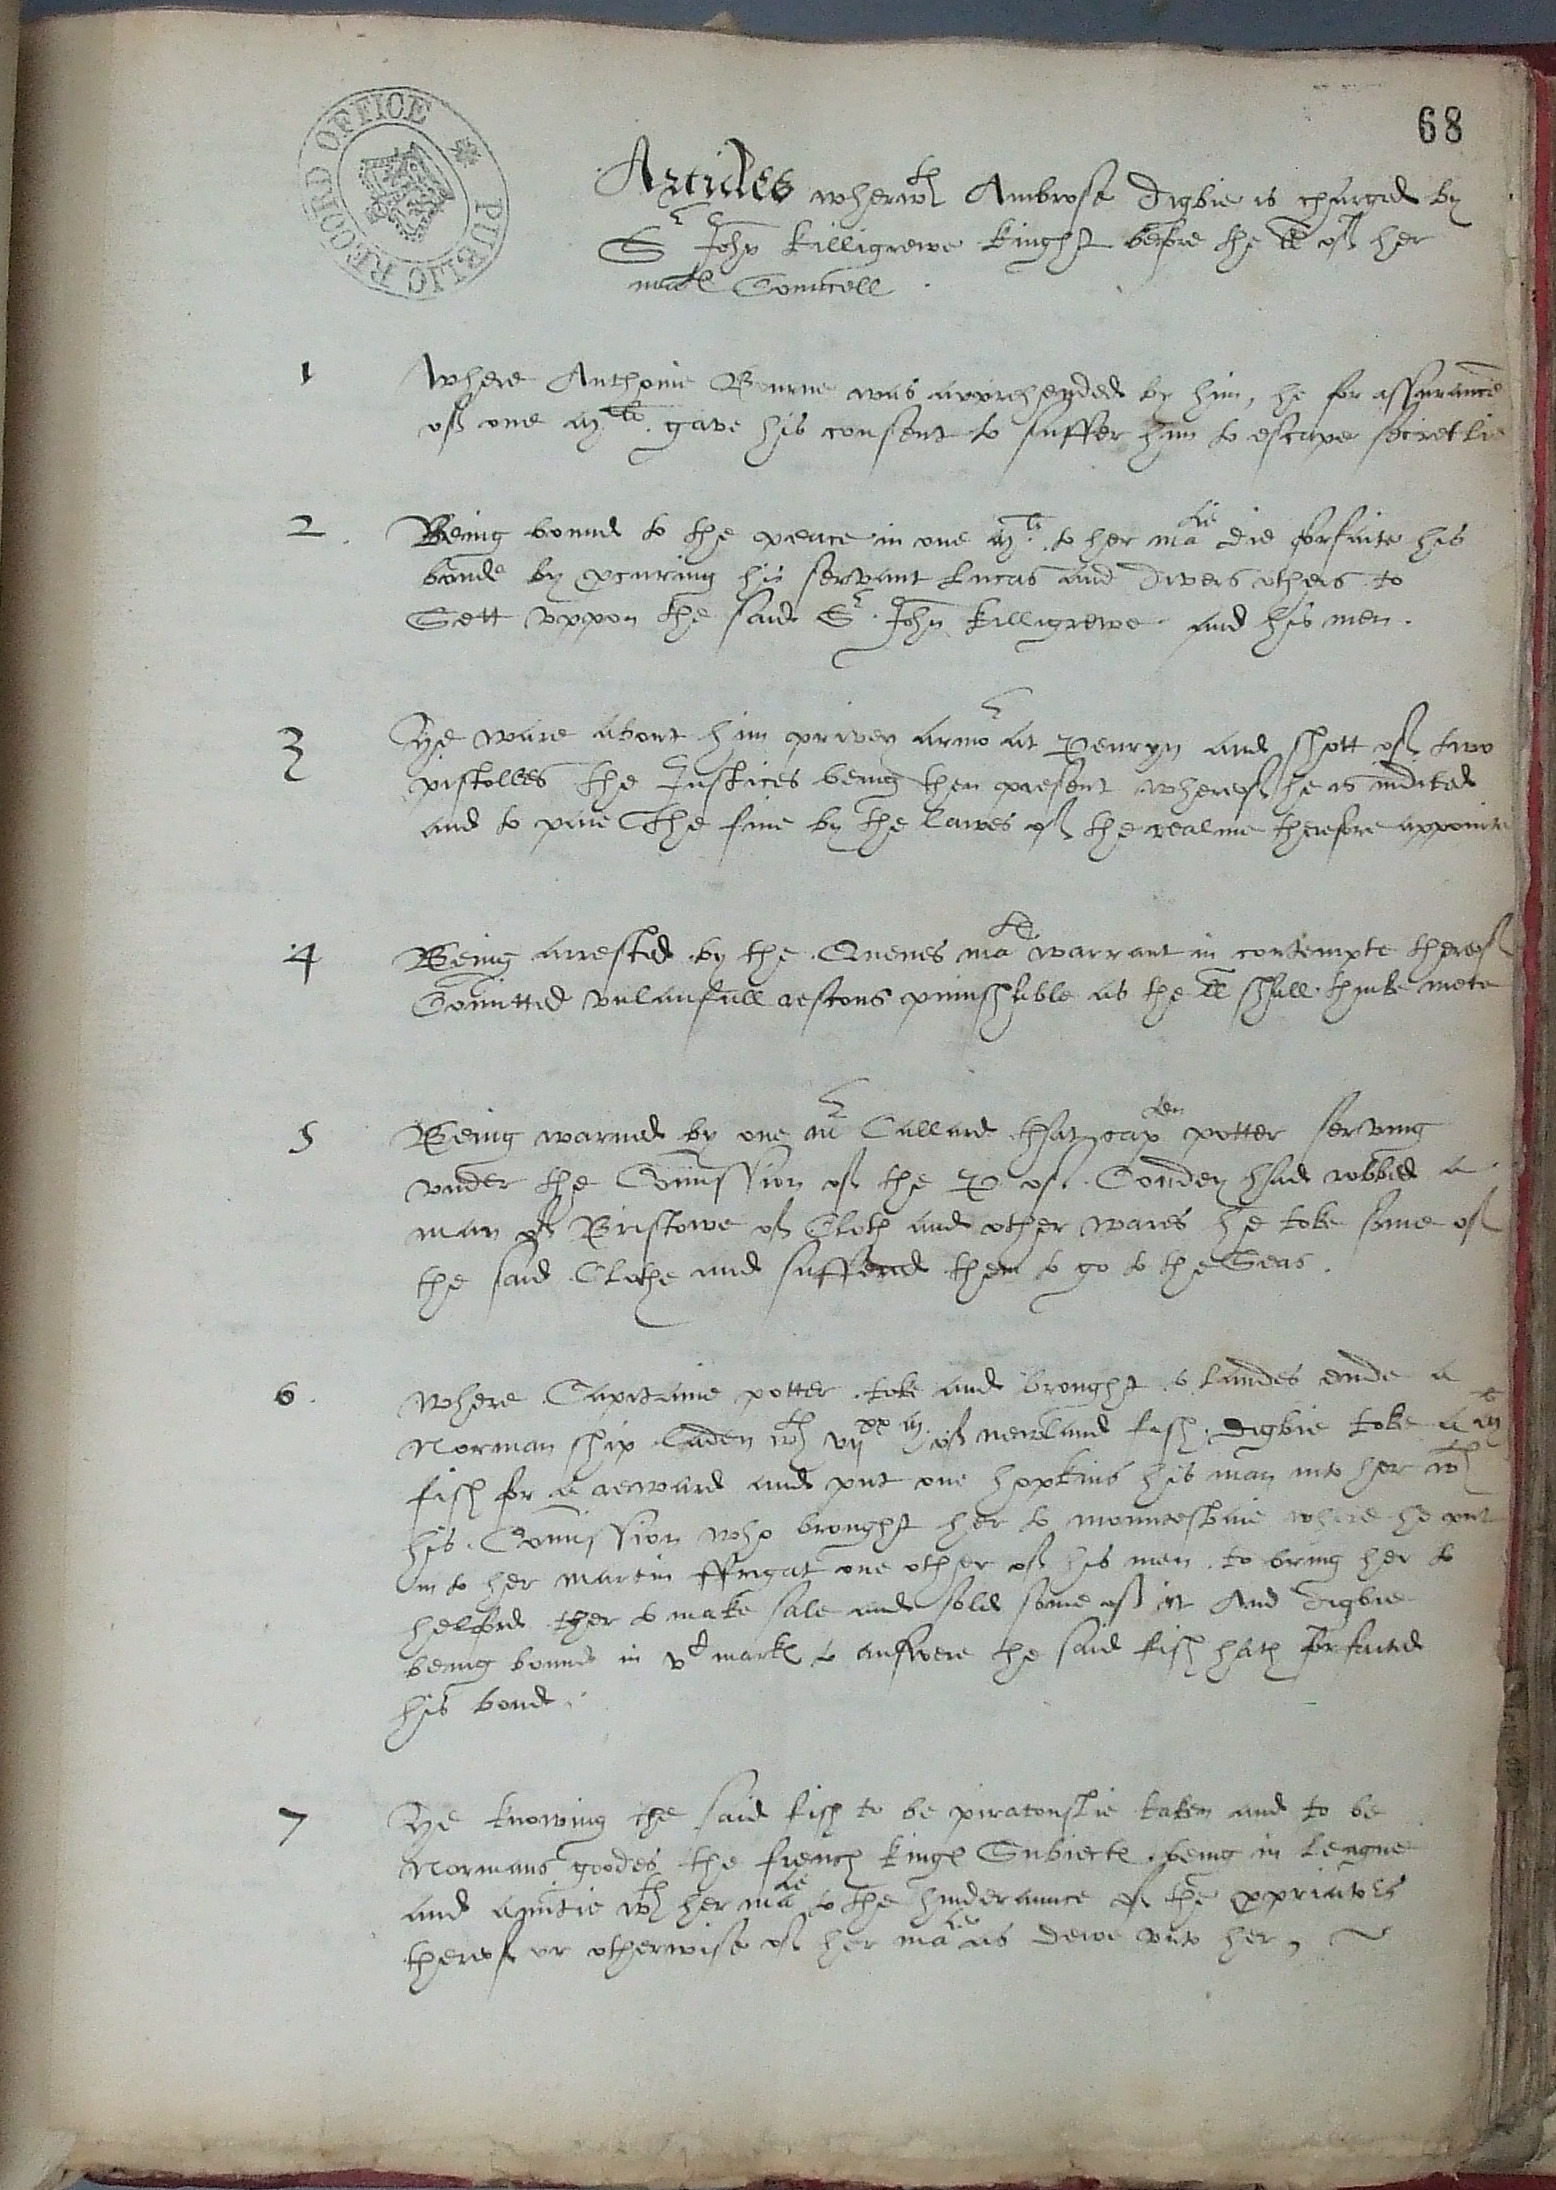 68
PUBLIC RECORD OFFICE
Articles wherwth Ambrose Digbie is charged by
Sr John Killigrewe knight before the ll of her
mats Councell
1 Where Anthonie Bourne was apprehended by him, he for assurance
of one mli gave his consent to suffer him to escape secretlie
2 Being bound to the peace in one mli to her matie did forfaite his
bonde by ꝓcuring his servant Lucas and divers others to
Sett vppon the said Sr John Killigrewe and his men.
3 He ware about him privey armor at Penryn and shott of two
pistolles the Justices being then present wherof he is indited
and to paie the fine by the lawes of the realme therefore appointe
4 Being arrested by the Quenes maties warrant in contempte therof
Comitted vnlaufull acions punishable as the ll shall thinke mete
5 Being warned by one mr Callard that capten potter serving
vnder the Comission of the P of Conden had robbed a
man of Bristowe of Cloth and other wares he toke some of
the said Clothe and suffered them to go to the Seas.
6. Where Capitaine potter toke and brought to Landes ende a
Norman ship laden wth vijxx m of newland fish. Digbie toke a m
fish for a reward and put one hopkins his man into her wth
his Comission who brought her to mountesbaie where he put
in to her martin ffrigat one other of his men to bring her to
helford ther to make sale and sold some of it And Digbie
being bound in vc markes to answere the said fish hath forfaited
his bond.
7 He knowing the said fish to be piratouslie taken and to be
Normans goodes the french kinges Subiectes being in league
and amitie wth her matie to the hinderaunce of the ꝓpriators
therof or otherwise of her matie as dewe vnto her,